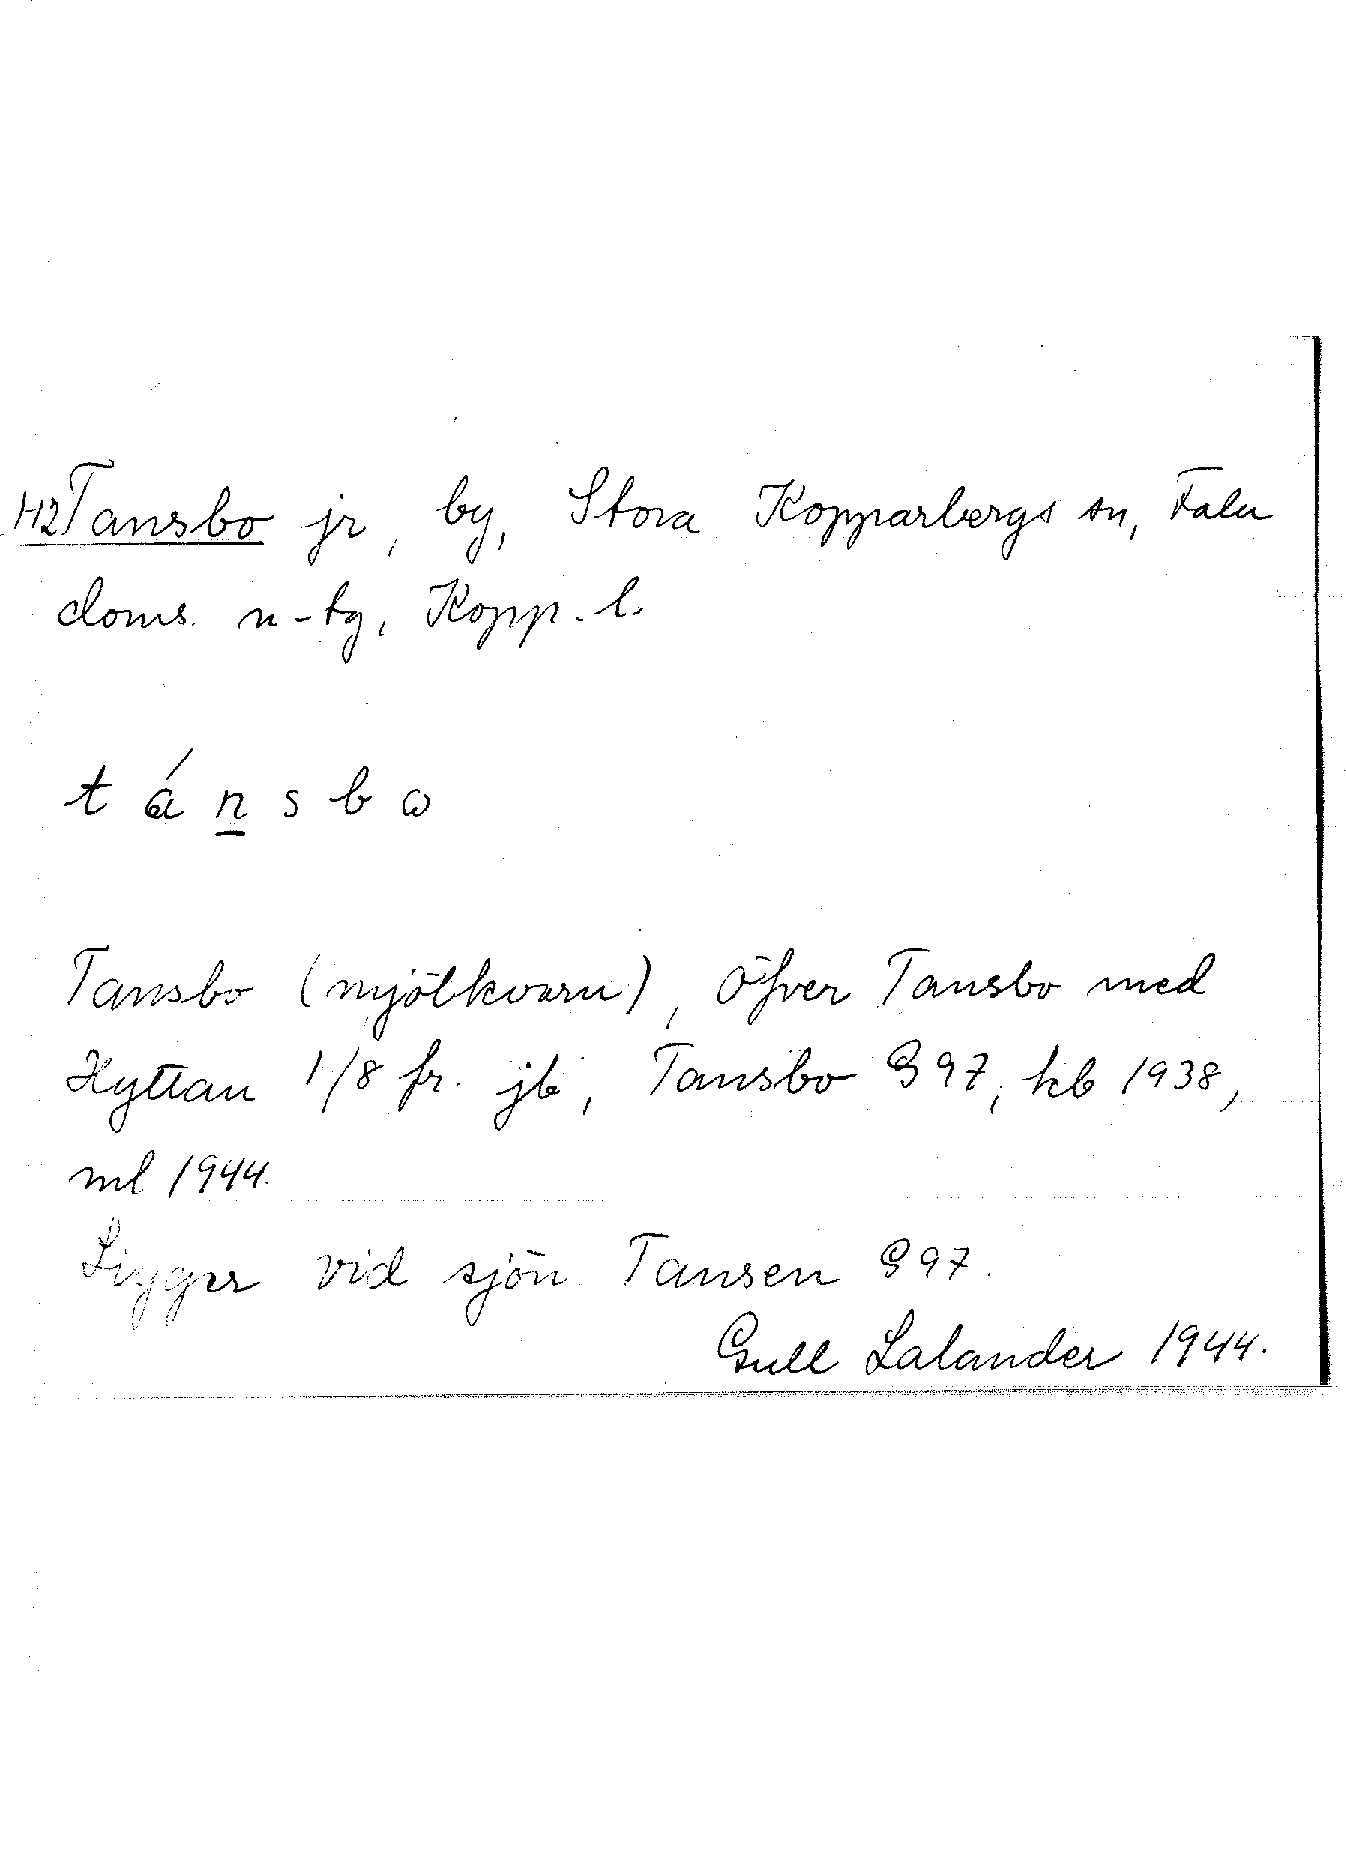 H2 Tansbo jr, by, Stora Kopparbergs sn, Falu
doms. n-tg, Kopp. l.
t á n s b ω
Tansbo (mjölkvarn), Öfver Tansbo med
Hyttan 1/8 fr. jb, Tansbo G97, kb 1938,
ml 1944.
Ligger vid sjön Tansen G97.
Gull Lalander 1944.